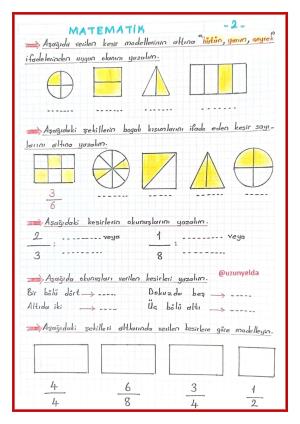 MATEMATİK -2-
Aşağıda verilen kesir modellerinin altına "bütün, yarım, çeyrek"
ifadelerinden uygun olanını yazalım.
Aşağıdaki şekillerin boyalı kısımlarını ifade eden kesir sayı-
larını altına yazalım.
3
6
Aşağıdaki kesirlerin okunuşlarını yazalım.
2/3 : ---------- veya ---------- 1/8 : ---------- veya ----------
@uzunyelda
Aşağıda okunuşları verilen kesirleri yazalım.
Bir bölü dört → ----- Dokuzda beş → -----
Altıda iki → ----- Üç bölü altı → -----
Aşağıdaki şekilleri altlarında verilen kesirlere göre modelleyin.
4/4 6/8 3/4 1/2